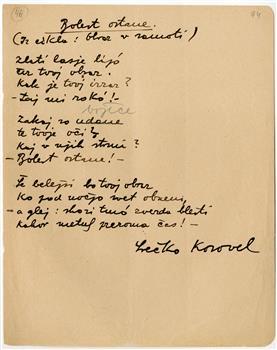 46
94
Bolest ostane.
(Iz cikla: Obraz v samoti)
zlati lasje lijó
čez tvoj obraz.
Kak je tvoj izraz?
- Daj mi roko! -
božiče
Zakaj so vdane
te tvoje oči?
Kaj v njih stoji?
- Bolest ostane! -
Še belejši bo tvoj obraz
ko pod nočjo svet obnemi,
- a glej: skozi tmó zvezda blesti
kakor metulj preroma čas! -
Srečko Kosovel